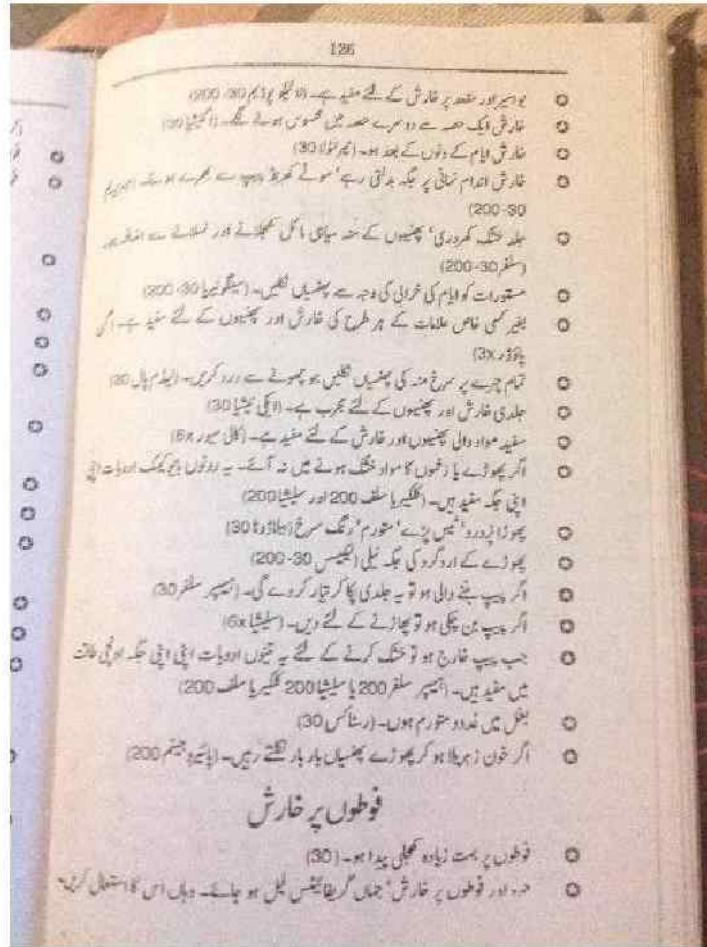 126
بواسیر اور مقعد پر خارش کے لئے مفید ہے۔ (لائیکو پوڈیم 30-200)
خارش ایک حصہ سے دوسرے حصہ میں محسوس ہونے لگے۔ (اگنیشیا 30)
خارش ایام کے دنوں کے بعد ہو۔ (30)
خارش اندام نہانی پر جگہ بدلتی رہے' موٹے کھرنڈ پیپ سے بھرے ہوئے۔
30-200)
جلد خشک کھردری' پھنسیوں کے منہ سیاہی مائل کھجلانے اور نہانے سے اضافہ ہو۔
(سلفر 30-200)
مستورات کو ایام کی خرابی کی وجہ سے پھنسیاں نکلیں۔ (سینگونیریا 30-200)
بغیر کسی خاص علامات کے ہر طرح کی خارش اور پھنسیوں کے لئے مفید ہے۔
پاؤڈر 3x)
تمام چہرے پر سرخ منہ کی پھنسیاں نکلیں جو چھونے سے درد کریں۔ (لیڈم پال 30)
جلدی خارش اور پھنسیوں کے لئے مجرب ہے۔ (30)
سفید مواد والی پھنسیوں اور خارش کے لئے مفید ہے۔ (کالی میور 6x)
اگر پھوڑے یا زخموں کا مواد خشک ہونے میں نہ آئے۔ یہ دونوں بائیوکیمک ادویات اپنی
اپنی جگہ مفید ہیں۔ (کلکیریا سلف 200 اور سلیشیا 200)
پھوڑا پُردرد' ٹیس پڑے' متورم' رنگ سرخ (بیلاڈونا 30)
پھوڑے کے اردگرد کی جگہ نیلی (لیکیسس 30-200)
اگر پیپ بننے والی ہو تو یہ جلدی پکا کر تیار کر دے گی۔ (ہیپر سلفر 30)
اگر پیپ بن چکی ہو تو پھاڑنے کے لئے دیں۔ (سلیشیا 6x)
جب پیپ خارج ہو تو خشک کرنے کے لئے یہ تینوں ادویات اپنی اپنی جگہ اونچی طاقت
میں مفید ہیں۔ (ہیپر سلفر 200 یا سلیشیا 200 کلکیریا سلف 200)
بغل میں غدود متورم ہوں۔ (رسٹاکس 30)
اگر خون زہریلا ہو کر پھوڑے پھنسیاں بار بار نکلتے رہیں۔ (پائیروجینم 200)
فوطوں پر خارش
فوطوں پر بہت زیادہ کھجلی پیدا ہو۔ (30)
اور فوطوں پر خارش' جہاں گریفائیٹس فیل ہو جائے۔ وہاں اس کا استعمال کریں۔